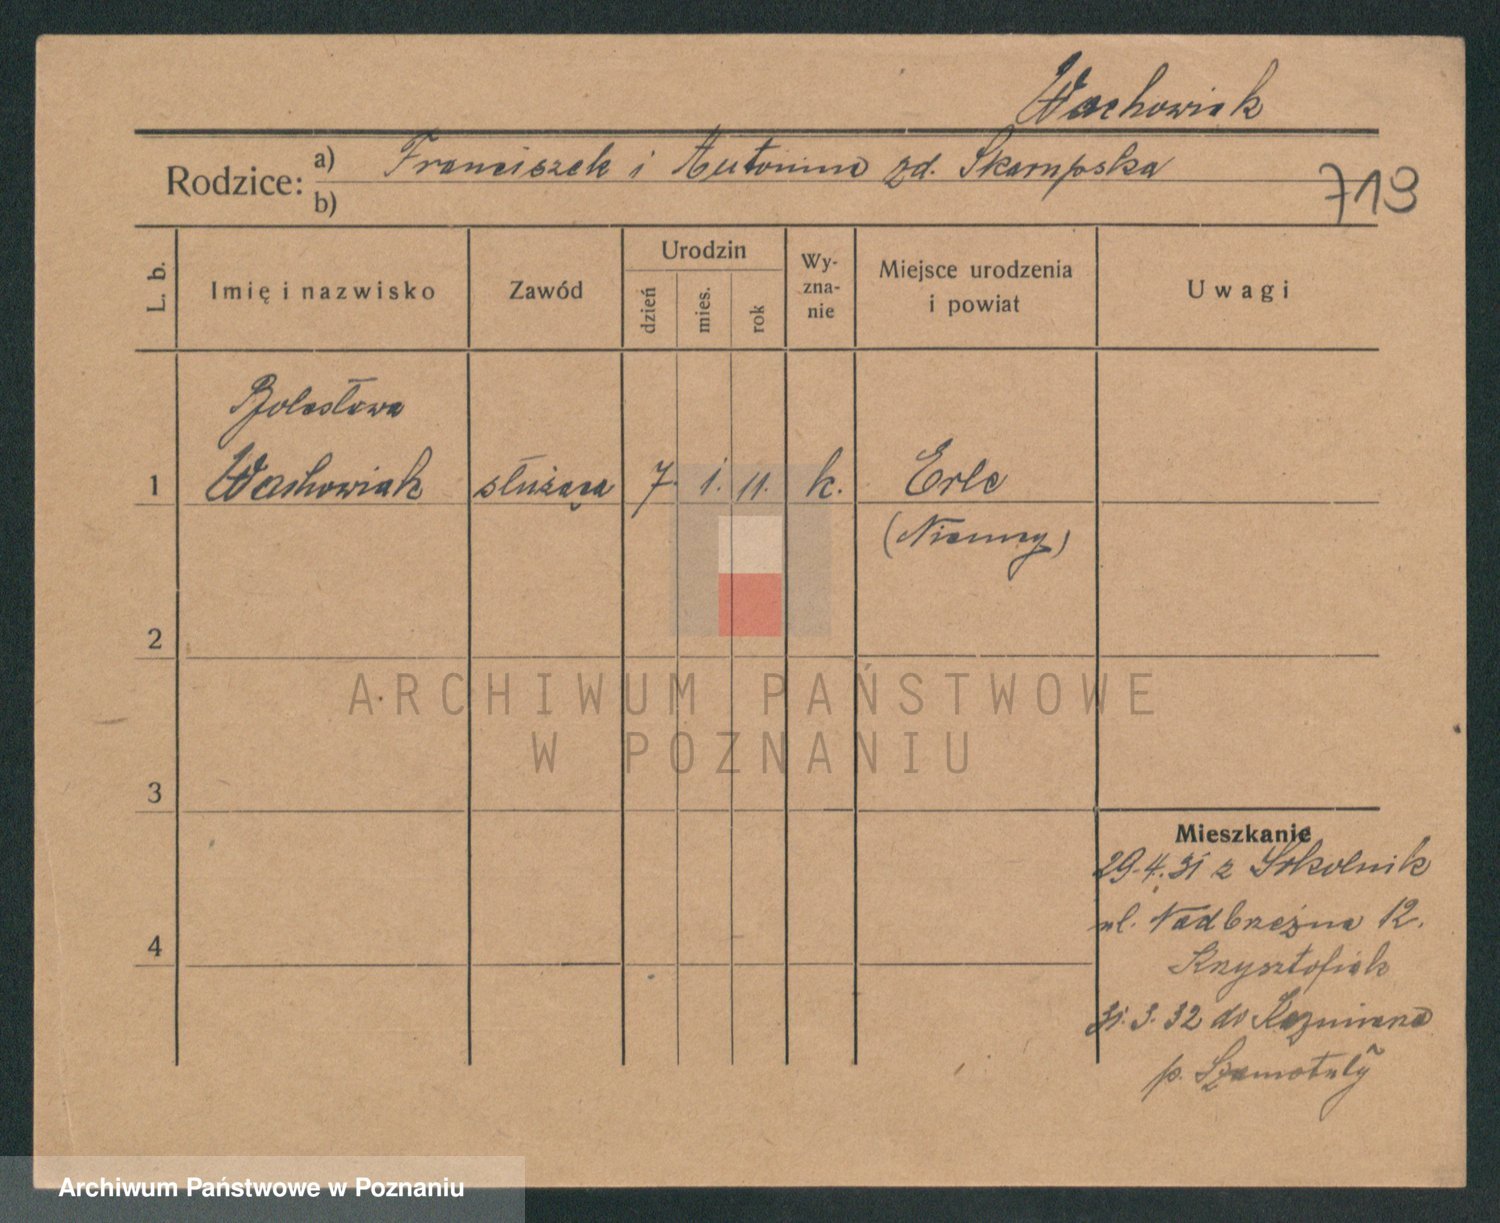 Wachowiak
Rodzice: a) Franciszek i Antonina zd. Skampska
b)
713
L. b.
Imię i nazwisko
Zawód
Urodzin
dzień
mies.
rok
Wy-
zna-
nie
Miejsce urodzenia
i powiat
Uwagi
Bolesława
1 Wachowiak służąca 7. 1. 11. k. Erle
(Niemcy)
2
3
4
Mieszkanie
29.4.31 z Sokolnik
ul. Nadbrzeżna 12.
Krzysztofiak
31.3.32 do Kaźmierza
p. Szamotuły
ARCHIWUM PAŃSTWOWE
W POZNANIU
Archiwum Państwowe w Poznaniu